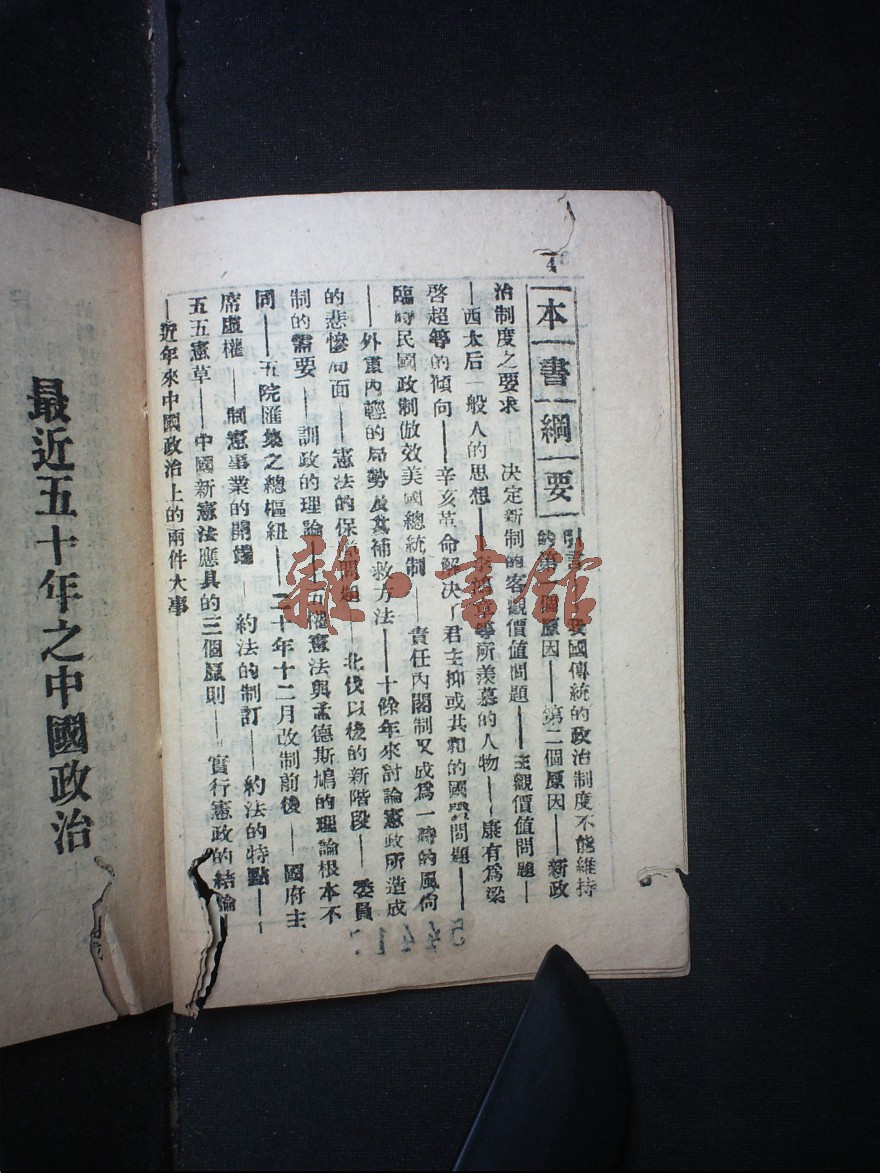 4
本書綱要
引言 我國傳統的政治制度不能維持
的第一個原因——第二個原因——新政
治制度之要求 決定新制的客觀價值問題——主觀價值問題——
——西太后一般人的思想——李鴻章等所羨慕的人物——康有爲梁
啓超等的傾向——辛亥革命解决了君主抑或共和的國體問題——
臨時民國政制倣效美國總統制——責任內閣制又成爲一時的風尚
——外重內輕的局勢及其補救方法——十餘年來討論憲政所造成
的悲慘局面——憲法的保障問題——北伐以後的新階段——委員
制的需要——訓政的理論——五權憲法與孟德斯鳩的理論根本不
同——五院匯集之總樞紐——二十年十二月改制前後——國府主
席虛權——制憲事業的開端——約法的制訂——約法的特點——
五五憲草——中國新憲法應具的三個原則——實行憲政的結論
——近年來中國政治上的兩件大事
最近五十年之中國政治
雜·書館